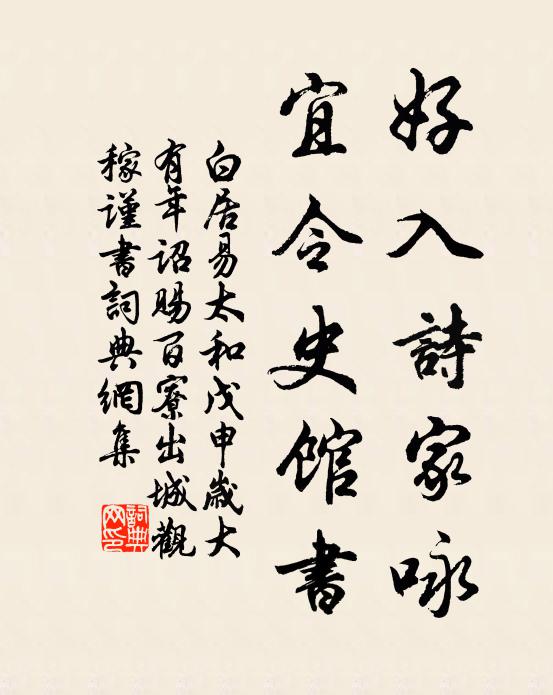 好入詩家咏
宜令史館書
白居易太和戊申歲大
有年詔賜百寮出城觀
稼謹書詞典網集
詞典网印